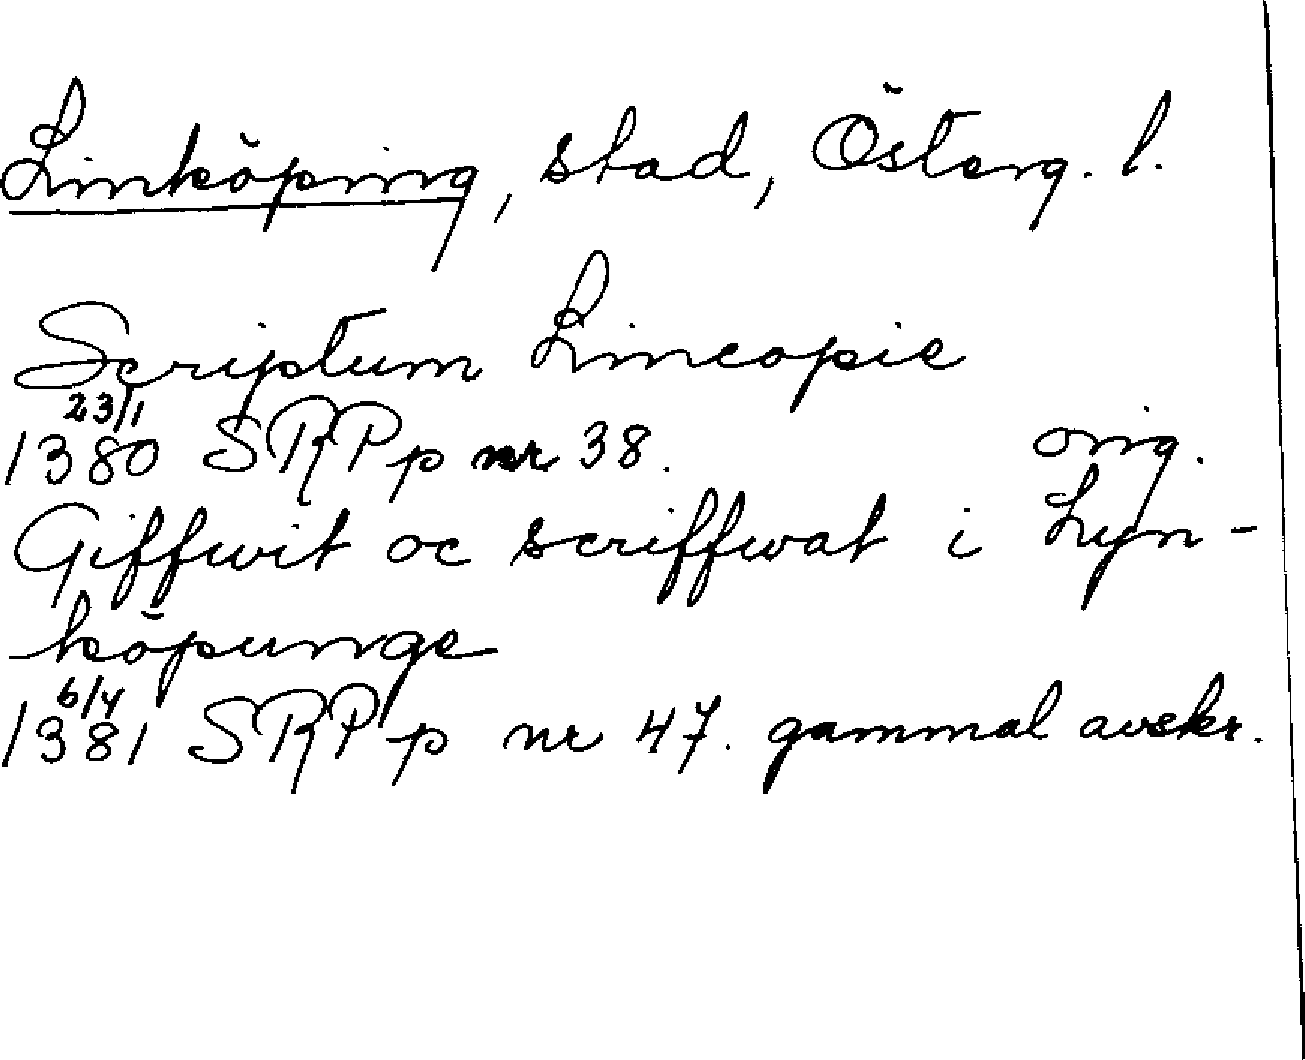 Linköping, stad, Österg. l.
Scriptum Lincopie
23/1
1380 SRPp nr 38. orig.
Giffwit oc scriffwat i Lyn-
köpunge
6/4
1381 SRPp nr 47. gammal avskr.